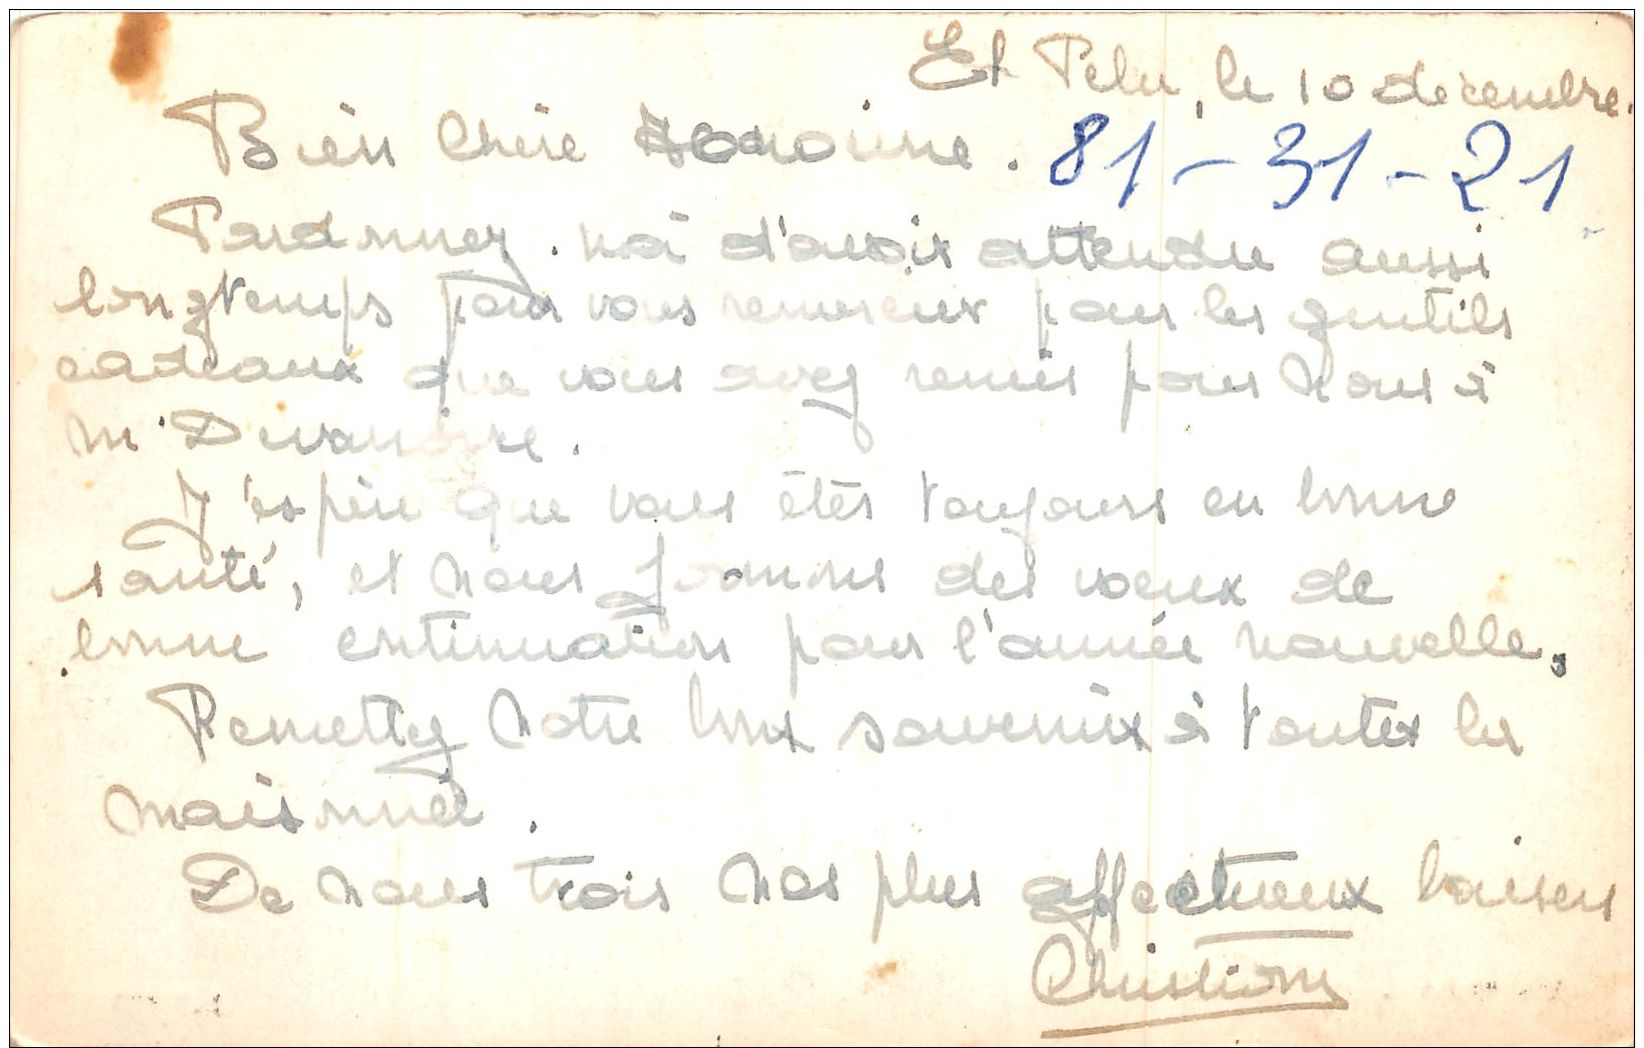 le 10 decembre.
Bien Chère
81-31-21
Pardonnez. moi d'avoir attendu aussi
longtemps pour vous remercier pour les gentils
cadeaux que vous avez remis pour nous à
M.
J'espère que vous êtes toujours en bonne
santé, et nous formons des voeux de
bonne continuation pour l'année nouvelle.
Remettez notre bons souvenirs à toutes les
maisonnée.
De nous trois nos plus affectueux baisers
Christiane